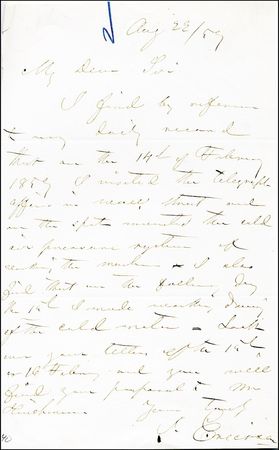 Aug 23/59
My Dear Sir
I find by reference
to my daily record
that on the 14th of February
1859 I visited the telegraph
office in street and
on the spot invented the cold
air pressure system of
the — I also
find that on the following day
the 15th I made
of the cold — Look
over your letters of the 15th
or 16 February and you will
find your proposal Mr
Hutchinson
Yours truly
J. Ericsson